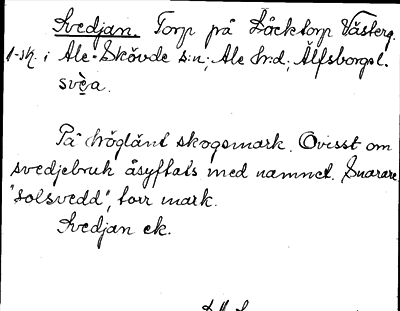 Svedjan. Torp på Läcktorp Västerg.
1-sk. i Ale-Skövde s:n; Ale h:d; Älfsborgsl.
svèa.
På högländ skogsmark. Ovisst om
svedjebruk åsyftats med namnet. Snarare
"solsvedd", torr mark.
Svedjan ek.